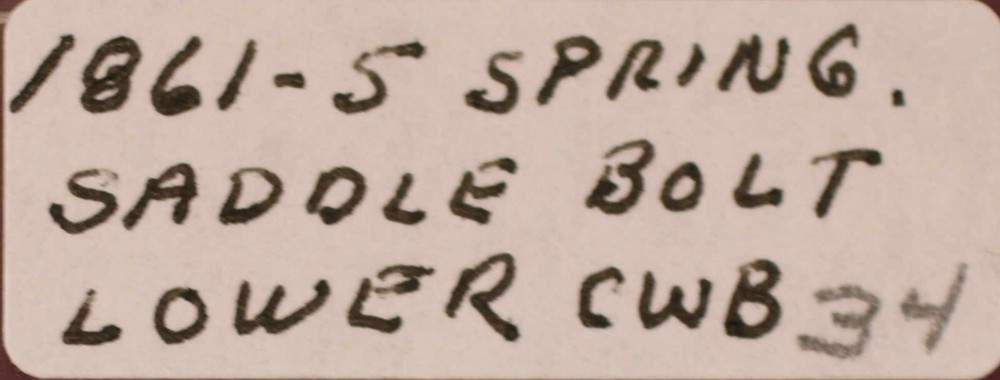 1861-5 SPRING.
SADDLE BOLT
LOWER CWB 34